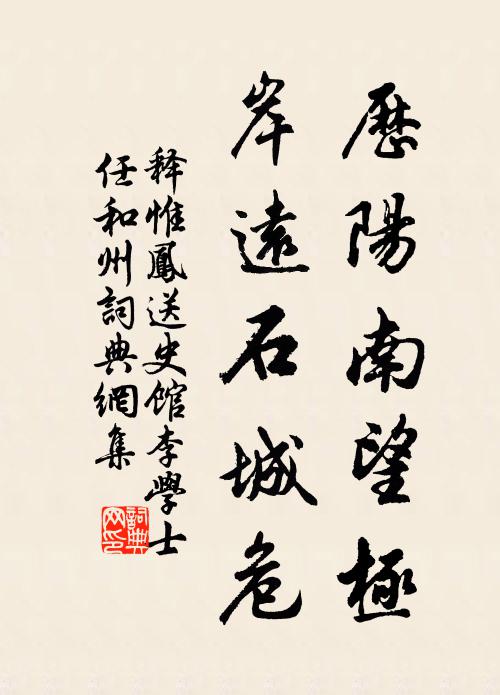 歷陽南望極
岸遠石城危
释惟鳳送史館李學士
任和州詞典網集
詞典
网印